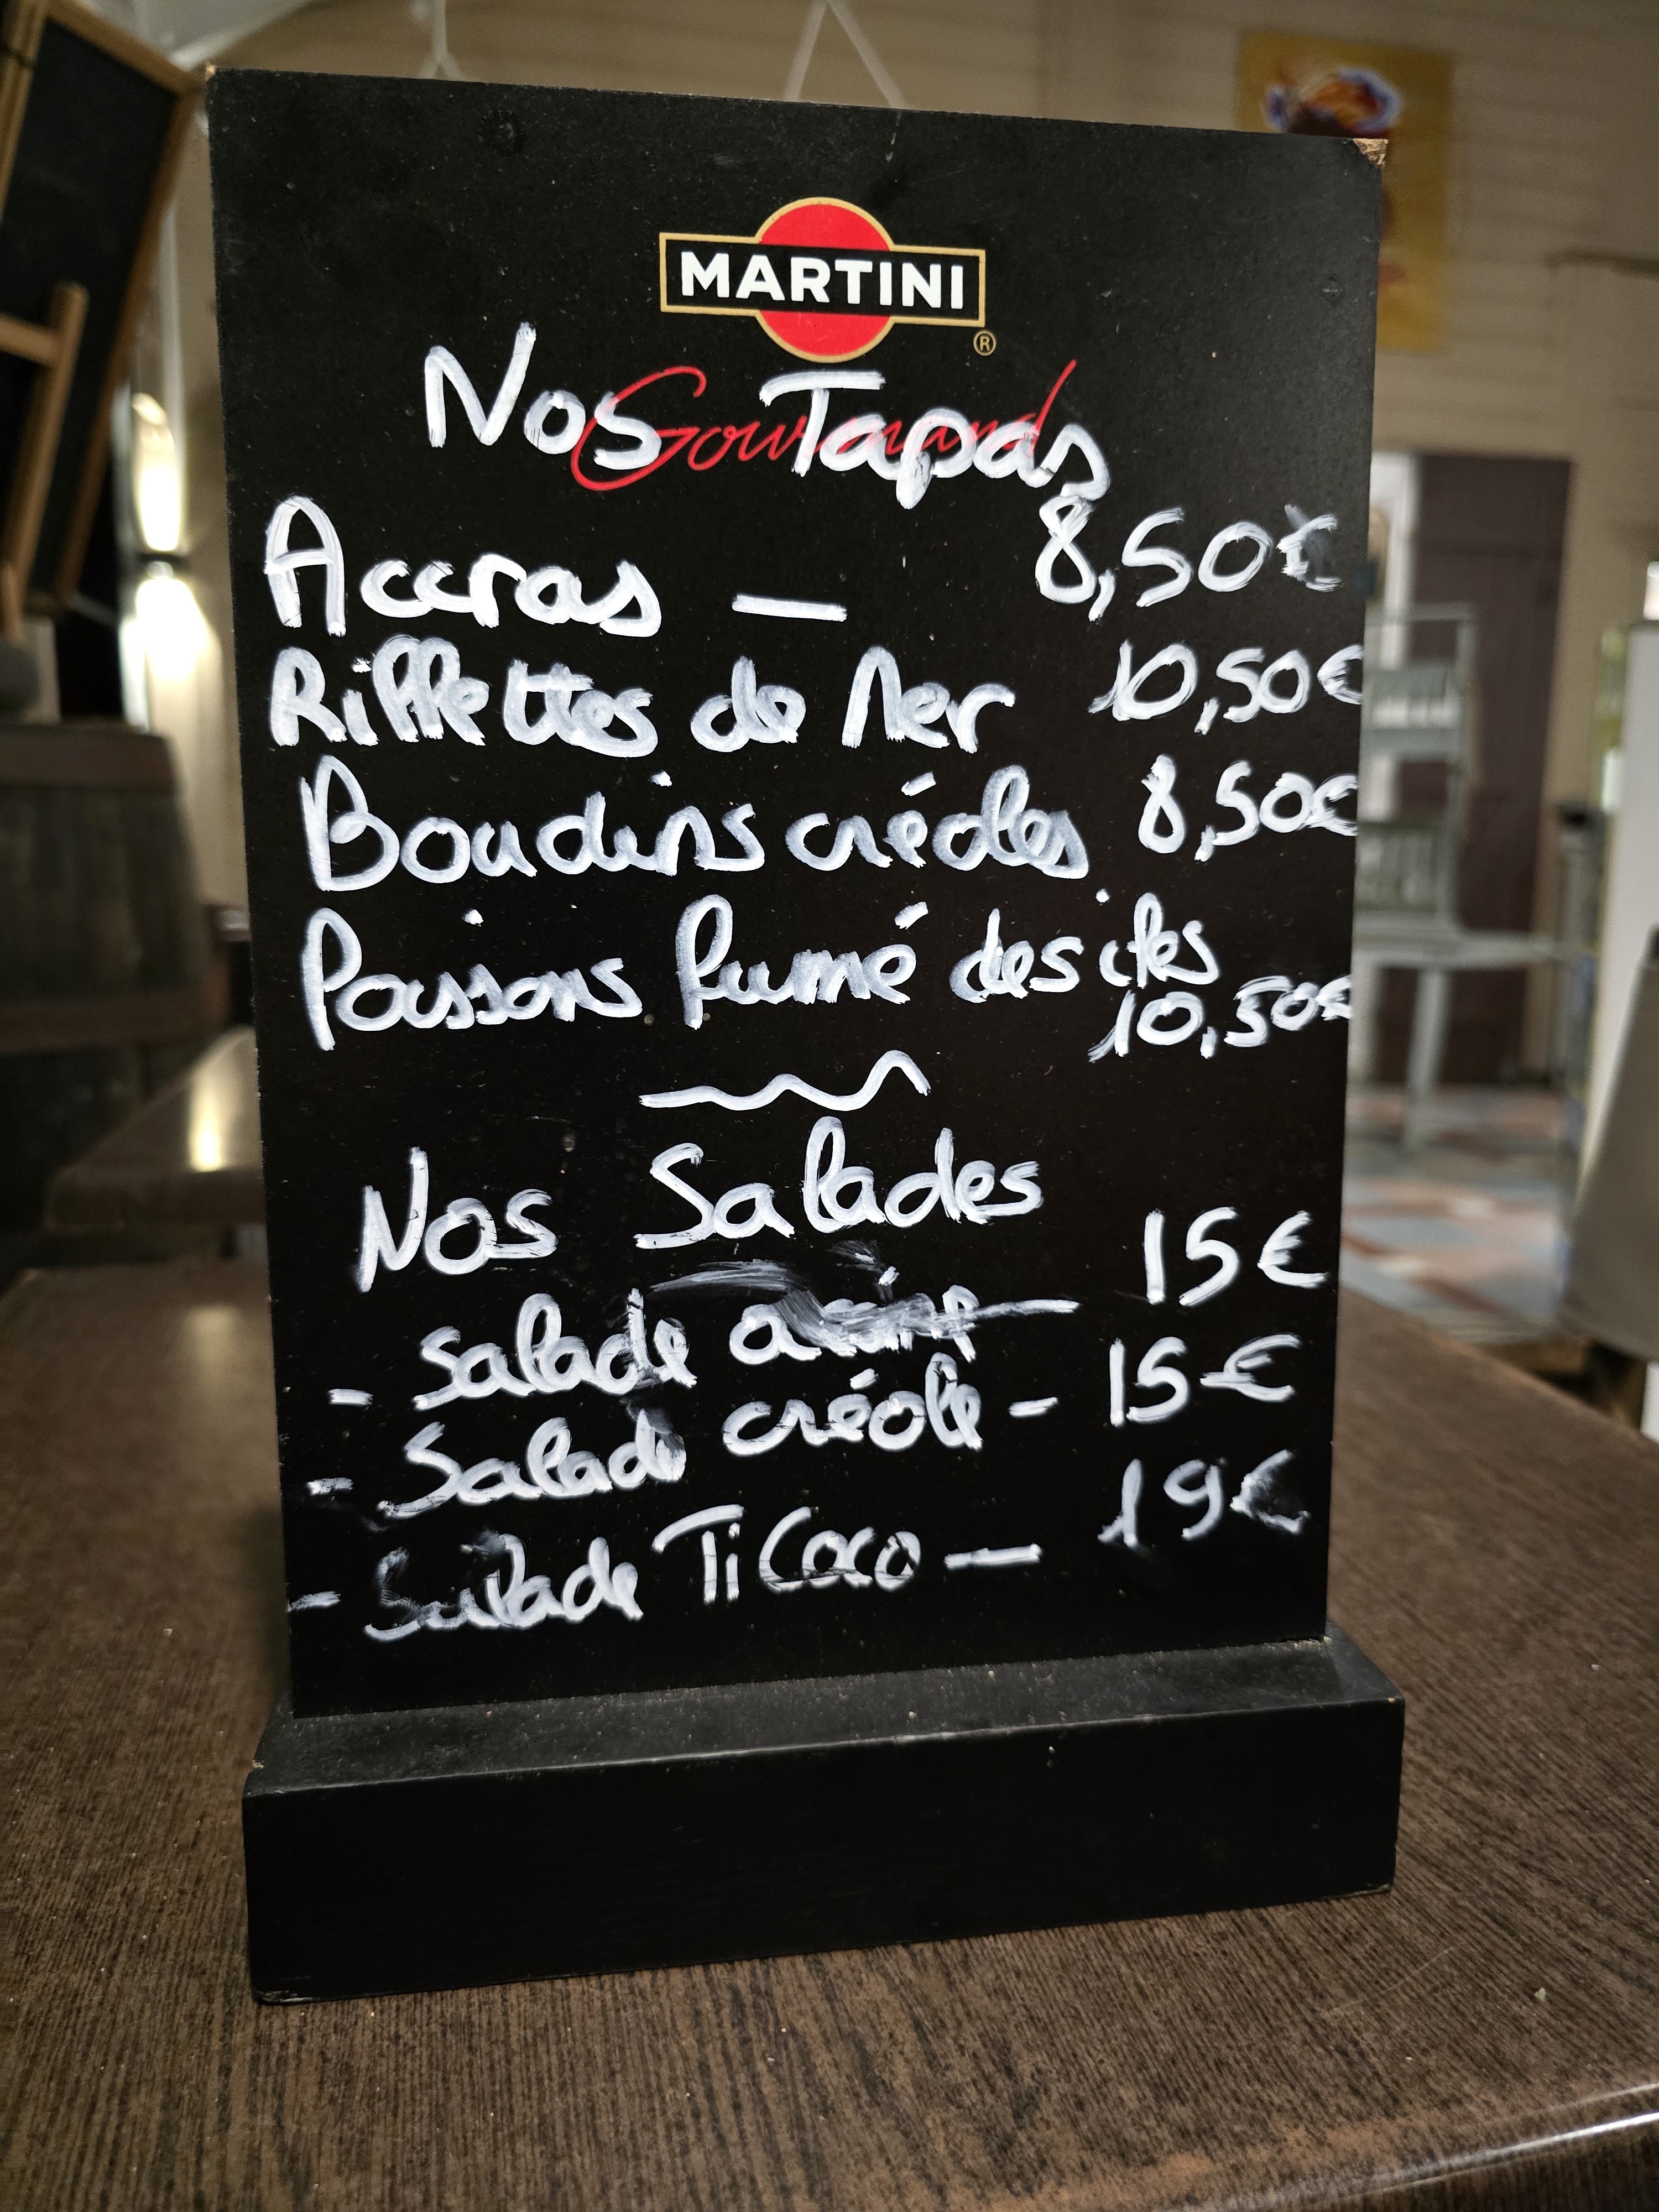 MARTINI
®
Gourmand
Nos Tapas
Accras — 8,50€
Riffettes de Mer 10,50€
Boudins créoles 8,50€
Poissons fumé des îles
10,50€
Nos Salades
- Salade 15€
- Salade créole - 15€
- Salade Ti Coco — 19€